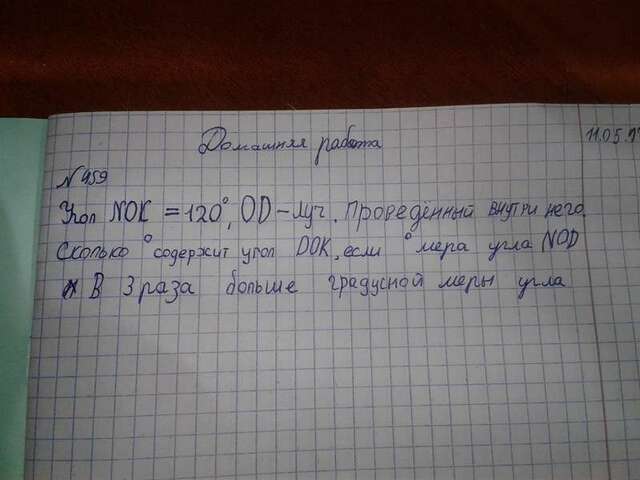 Домашняя работа
11.05.1
№ 459
Угол NOK = 120°, OD – Луч. Проведённый внутри него.
Сколько ° содержит угол DOK, если ° мера угла NOD
В 3 раза больше градусной меры угла